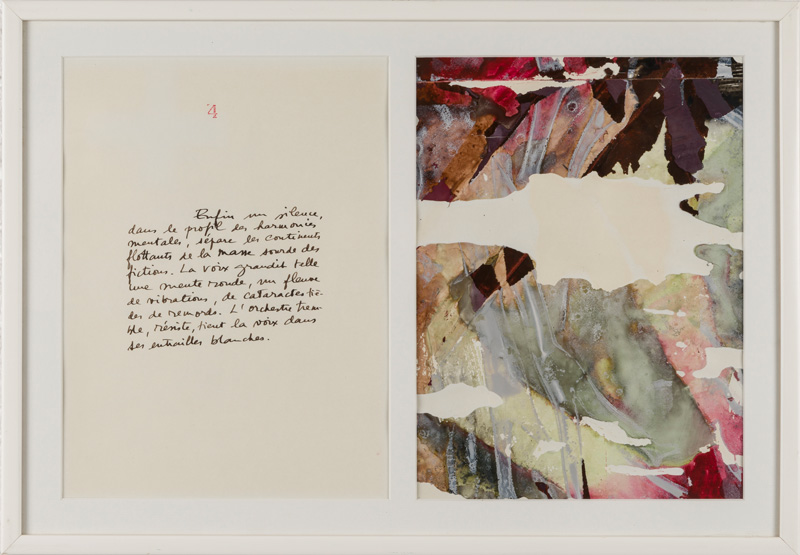 4
Enfin un silence,
dans le profil les harmonies
mentales, sépare les continents
flottants de la masse sourde des
fictions. La voix grandit telle
une meute ronde, un fleuve
de vibrations, de cataractes tiè-
des de remords. L'orchestre trem-
ble, résiste, tient la voix dans
ses entrailles blanches.